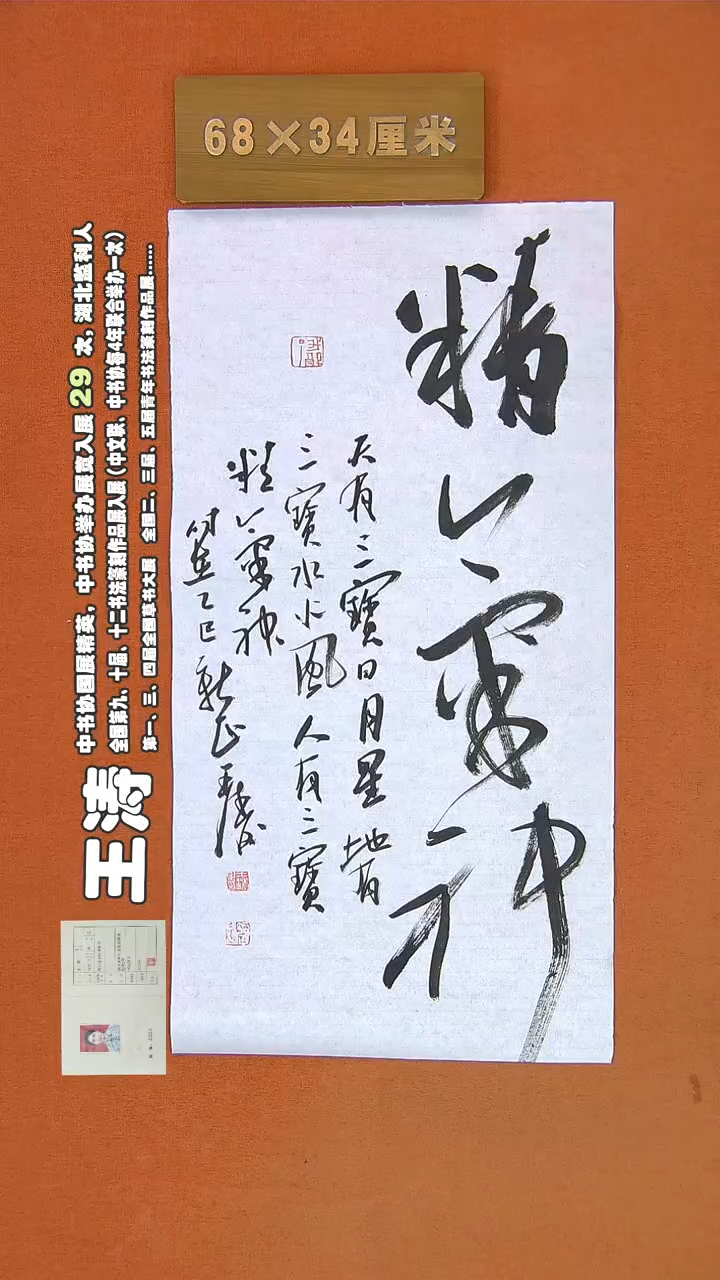 68×34厘米
精氣神
天有三寶日月星地有
三寶水火風人有三寶
精氣神
时在乙巳新正王濤
王涛
中书协国展精英，中书协举办展赏入展 29 次，湖北监利人
全国第九、十届、十二书法篆刻作品展入展（中文联、中书协每4年联合举办一次）
第一、三、四届全国草书大展 全国二、三届、五届青年书法篆刻作品展......